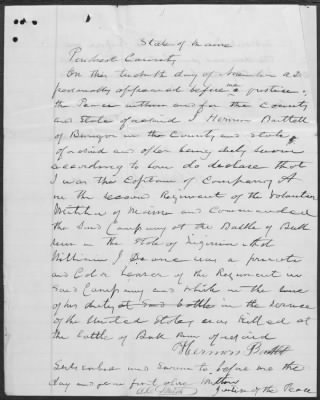 State of Maine
Penobscot County
On this tenth day of November A.D.
personally appeared before me a Justice of
the Peace within and for the County
and State aforesaid I Hermon Bartlett
of Bangor in the County and State
aforesaid and after being duly sworn
according to Law do declare that
I was the Captain of Company A
in the second Regiment of the Volunteer
Militia of Maine and Commanded
the said Company at the Battle of Bull
Run in the State of Virginia that
William J Deane was a private
and Color bearer of the Regiment in
said Company and while in the line
of his duty at said battle in the service
of the United States was killed at
the battle of Bull Run aforesaid
Hermon Bartlett
Subscribed and sworn to before me the
day and year first above written
Justice of the Peace